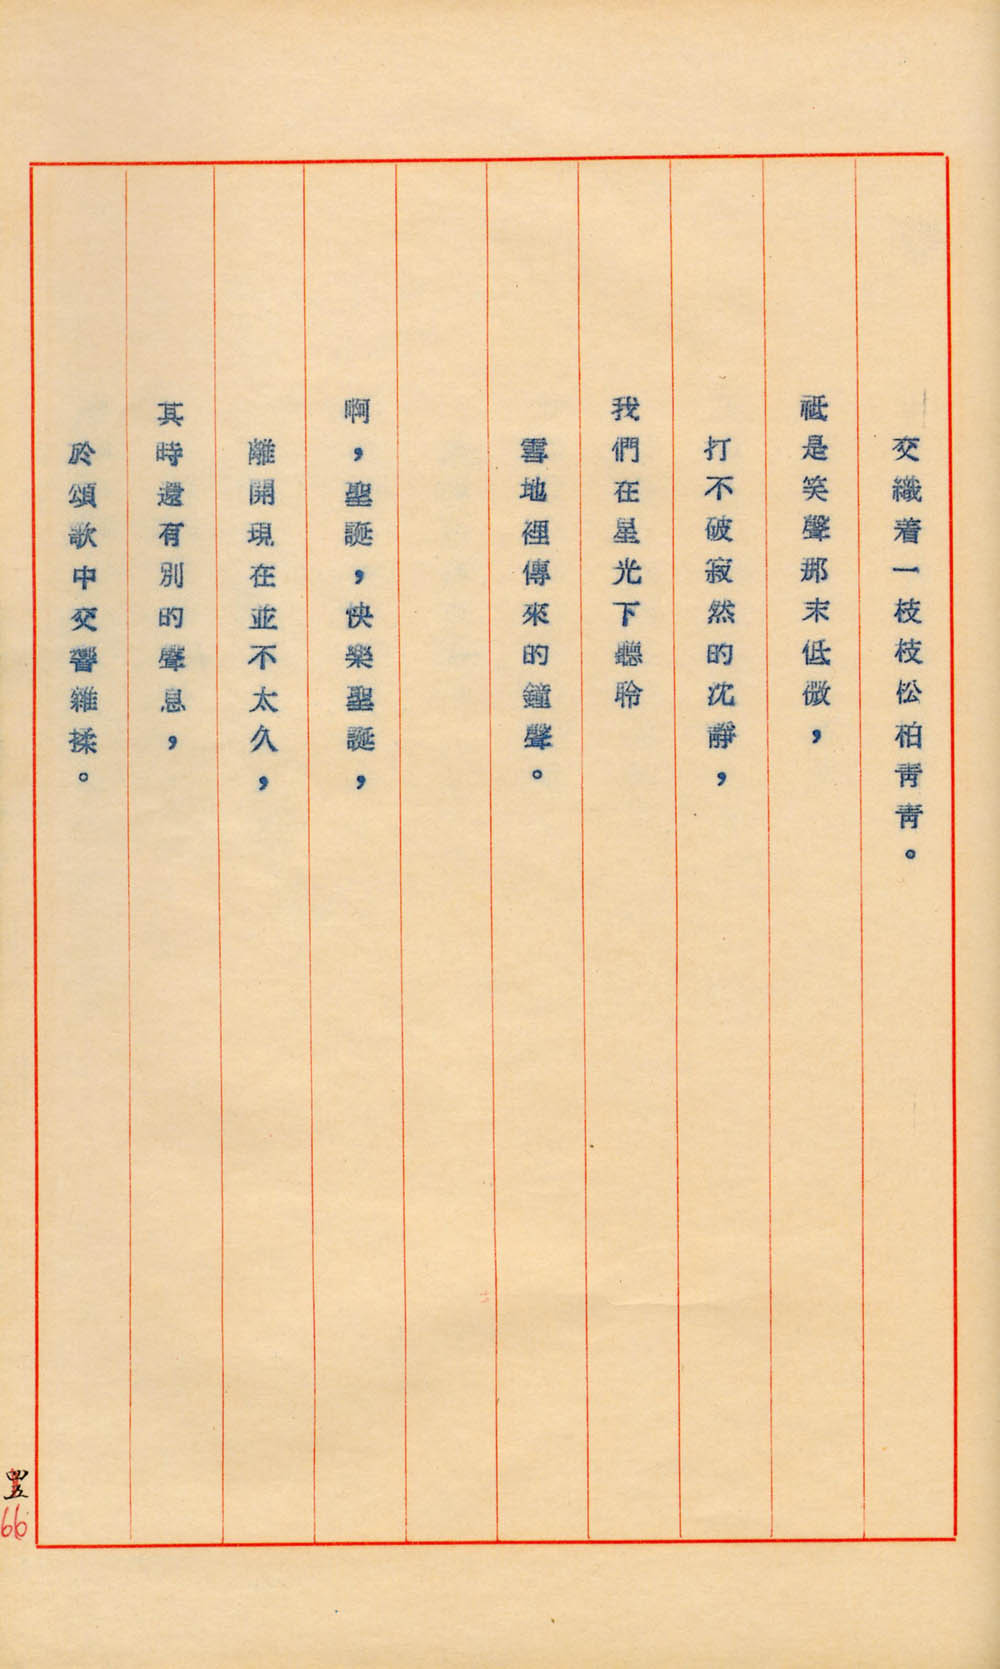 交織着一枝枝松柏靑靑。
祗是笑聲那末低微，
打不破寂然的沈靜，
我們在星光下聽聆
雪地裡傳來的鐘聲。
啊，聖誕，快樂聖誕，
離開現在並不太久，
其時還有別的聲息，
於頌歌中交響雜揉。
66